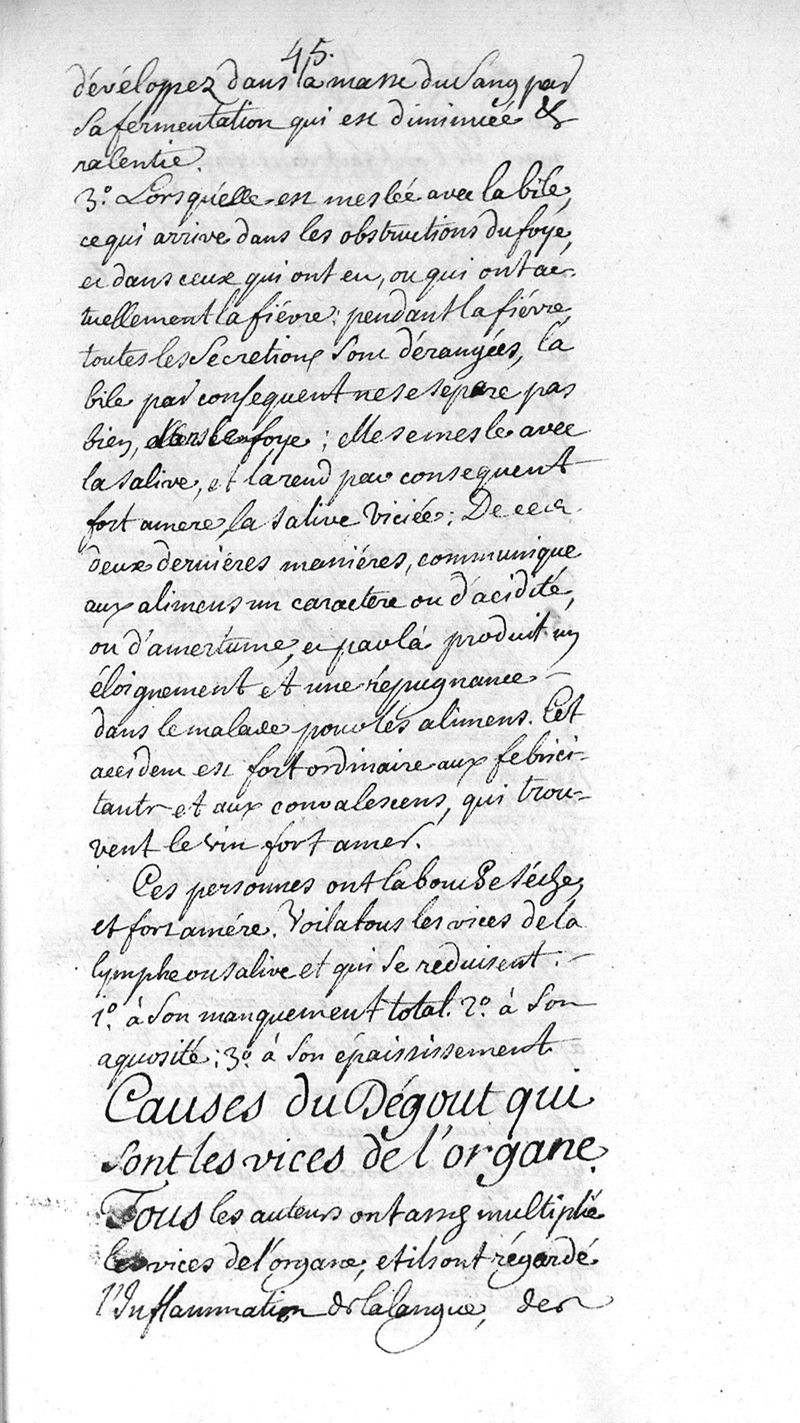 45.
dévéloppez dans la masse du Sang par
Sa fermentation qui est diminuée &
ralentie.
3.° Lorsqu'elle est meslée avec la bile,
ce qui arrive dans les obstructions du foye,
et dans ceux qui ont eu, ou qui ont ac-
tuellement la fiévre: pendant la fiévre,
toutes les Secretions Sont dérangées, la
bile par consequent ne se separe pas
bien, dans le foye; elle se mesle avec
la salive, et la rend par consequent
fort amere, la Salive Viciée: De ces
deux derniéres maniéres, communique
aux alimens un caractére ou d'acidité,
ou d'amertume, et par là produit un
éloignement et une répugnance
dans le malade pour les alimens. Cet
accident est fort ordinaire aux febrici-
tants et aux convalescens, qui trou-
vent le vin fort amer.
Ces personnes ont la bouche séche,
et fort amére. Voila tous les vices de la
lymphe ou salive et qui Se reduisent:
1.° à Son manquement total. 2.° à Son
aquosité; 3.° à Son épaississement
Causes du Dégout qui
sont les vices de l'organe.
Tous les auteurs ont assés multiplié
les vices de l'organe, et ils ont régardé
l'Inflammation de la langue, des